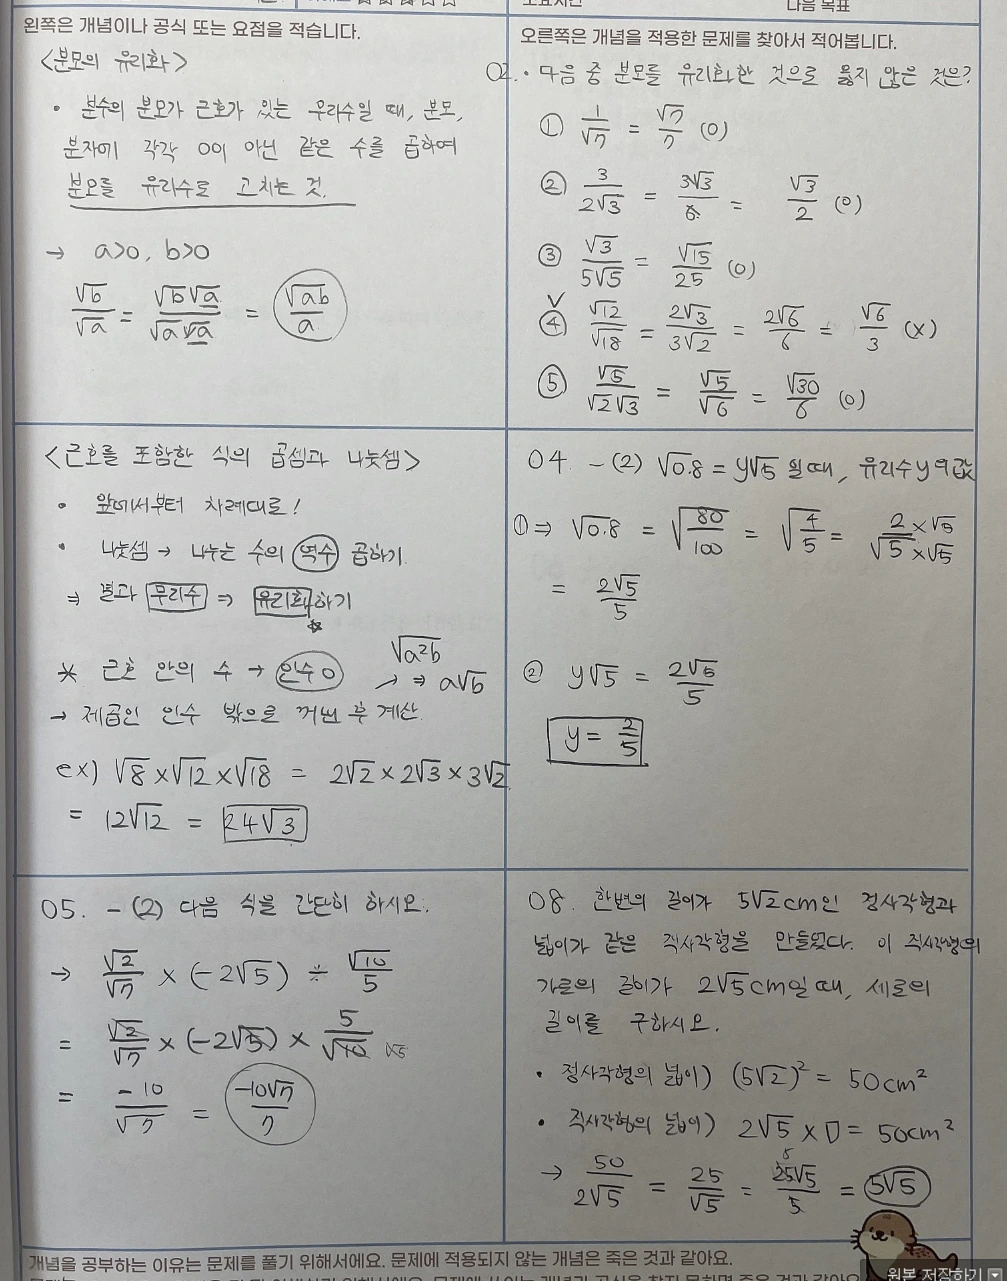 소요시간
다음 목표
왼쪽은 개념이나 공식 또는 요점을 적습니다.
<분모의 유리화>
• 분수의 분모가 근호가 있는 무리수일 때, 분모,
분자에 각각 0이 아닌 같은 수를 곱하여
분모를 유리수로 고치는 것.
→ a>0, b>0
√b/√a = √b√a/√a√a = √ab/a
오른쪽은 개념을 적용한 문제를 찾아서 적어봅니다.
02. • 다음 중 분모를 유리화한 것으로 옳지 않은 것은?
① 1/√7 = √7/7 (O)
② 3/2√3 = 3√3/6 = √3/2 (O)
③ √3/5√5 = √15/25 (O)
✓④ √12/√18 = 2√3/3√2 = 2√6/6 = √6/3 (X)
⑤ √5/√2√3 = √5/√6 = √30/6 (O)
<근호를 포함한 식의 곱셈과 나눗셈>
• 앞에서부터 차례대로!
• 나눗셈 → 나누는 수의 역수 곱하기.
⇒ 결과 무리수 ⇒ 유리화하기
☆
* 근호 안의 수 → 인수 O √a²b
↗ ⇒ a√b
→ 제곱인 인수 밖으로 꺼낸 후 계산.
ex) √8 × √12 × √18 = 2√2 × 2√3 × 3√2
= 12√12 = 24√3
04. - (2) √0.8 = y√5 일 때, 유리수 y의 값
① ⇒ √0.8 = √80/100 = √4/5 = 2×√5/√5×√5
= 2√5/5
② y√5 = 2√5/5
y = 2/5
05. - (2) 다음 식을 간단히 하시오.
→ √2/√7 × (-2√5) ÷ √10/5
= √2/√7 × (-2√5) × 5/√10 √5
= -10/√7 = -10√7/7
08. 한변의 길이가 5√2cm인 정사각형과
넓이가 같은 직사각형을 만들었다. 이 직사각형의
가로의 길이가 2√5cm일 때, 세로의
길이를 구하시오.
• 정사각형의 넓이) (5√2)² = 50cm²
• 직사각형의 넓이) 2√5 × □ = 50cm²
→ 50/2√5 = 25/√5 = 25√5/5 = 5√5
5
개념을 공부하는 이유는 문제를 풀기 위해서에요. 문제에 적용되지 않는 개념은 죽은 것과 같아요.
원본 저장하기